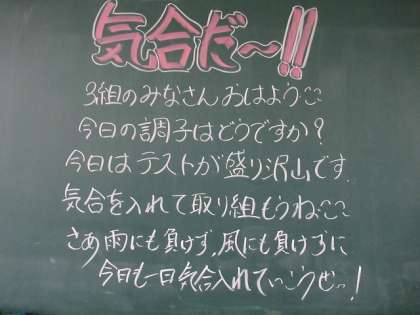 気合だ〜!!
3組のみなさんおはよう^^
今日の調子はどうですか？
今日はテストが盛り沢山です.
気合を入れて取り組もうね^^
さあ雨にも負けず,風にも負けずに
今日も一日気合入れていこうぜ〜!